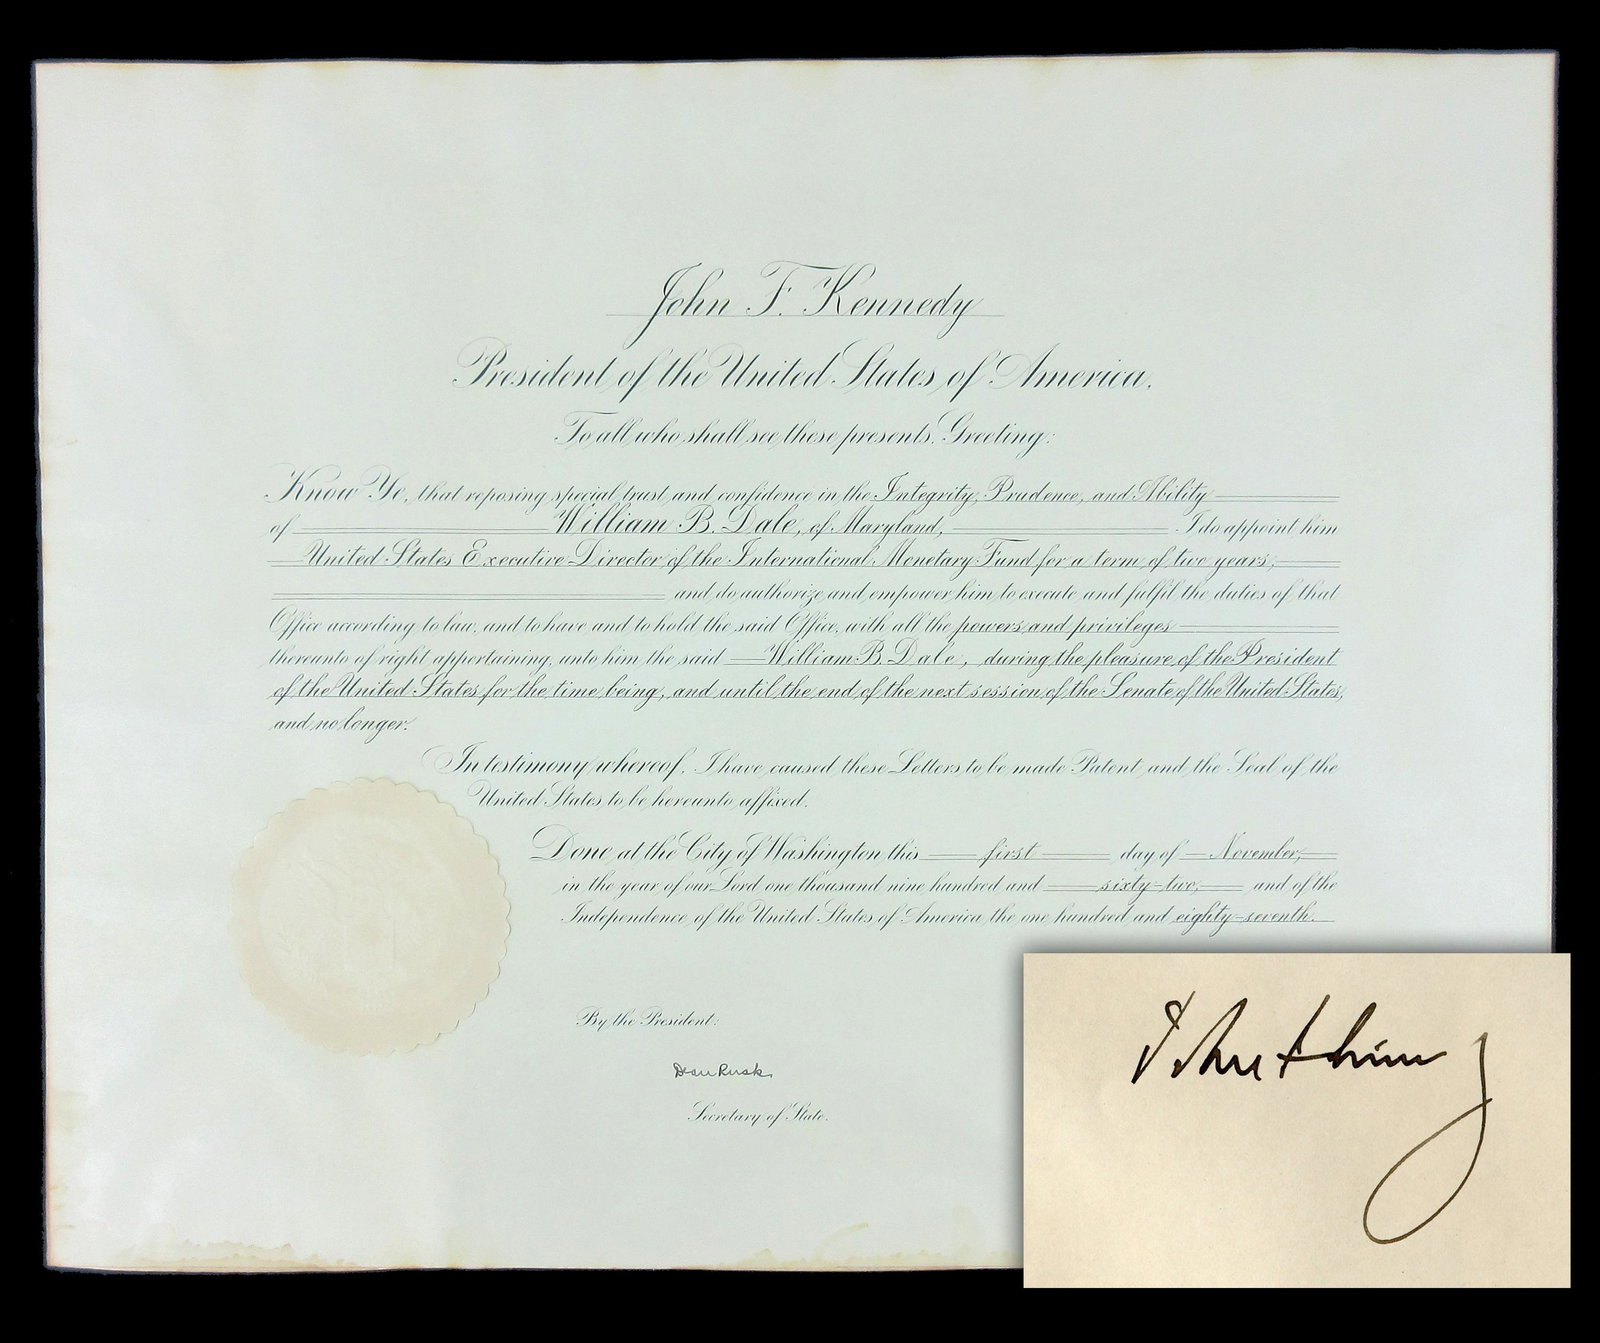 John F. Kennedy
President of the United States of America.
To all who shall see these presents, Greeting:
Know Ye, that reposing special trust and confidence in the Integrity, Prudence, and Ability
of William B. Dale, of Maryland, I do appoint him
United States Executive Director of the International Monetary Fund for a term of two years,
and do authorize and empower him to execute and fulfil the duties of that
Office according to law, and to have and to hold the said Office, with all the powers and privileges
thereunto of right appertaining, unto him the said William B. Dale, during the pleasure of the President
of the United States for the time being, and until the end of the next session of the Senate of the United States,
and no longer.
In testimony whereof, I have caused these Letters to be made Patent and the Seal of the
United States to be hereunto affixed.
Done at the City of Washington this first day of November,
in the year of our Lord one thousand nine hundred and sixty-two, and of the
Independence of the United States of America the one hundred and eighty-seventh.
By the President:
Dean Rusk
Secretary of State.